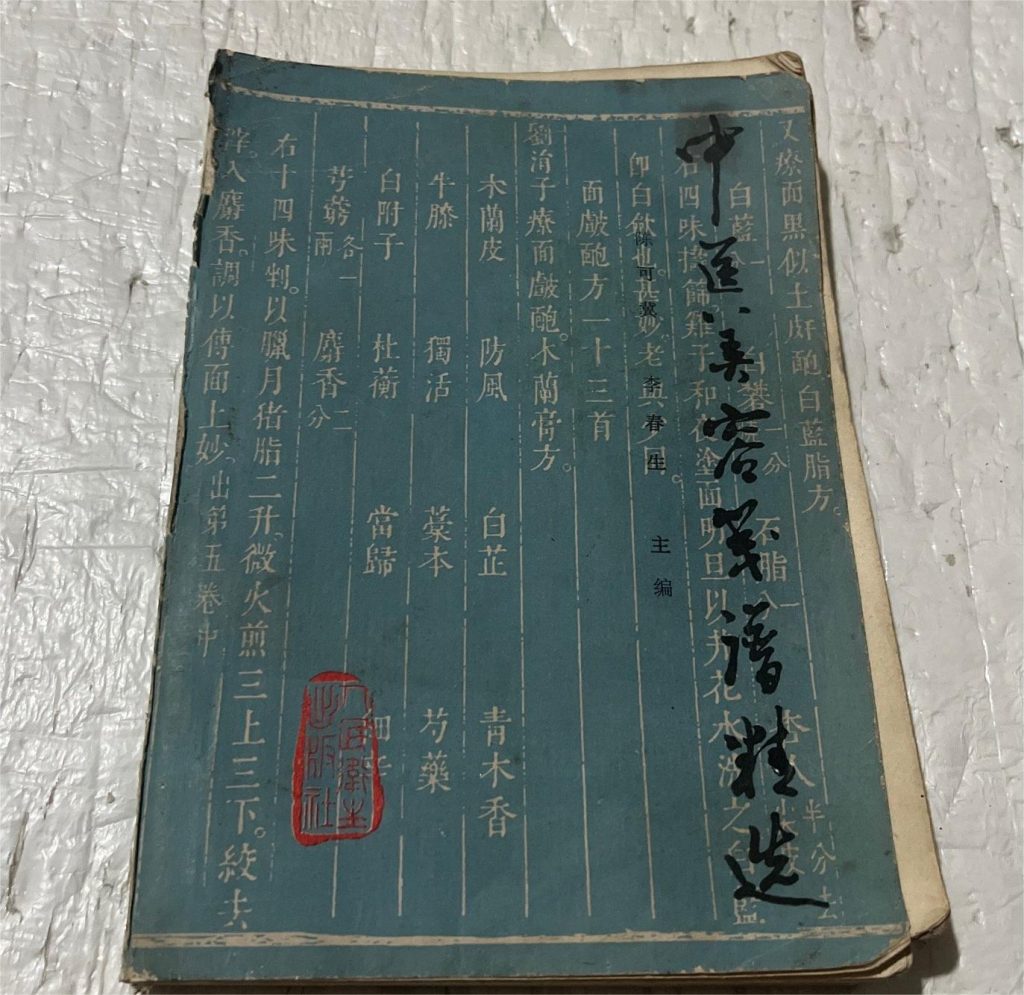 中医美容笺谱精选
陈可冀 李春生 主编
又療面黑似土皯皰白藍脂方。
右四味擣篩雞子和夜塗面明旦以井花水洗之白藍
即白也。甚妙。老與少同。
面皶皰方一十三首
劉涓子療面皶皰。木蘭膏方。
木蘭皮 防風 白芷 青木香
牛膝 獨活 藁本 芍藥
白附子 杜蘅 當歸 細
芎藭各一兩 麝香二分
右十四味剉。以臘月猪脂二升微火煎三上三下。絞去
滓。入麝香。調以傅面上妙。出第五卷中
人民衛生
出版社